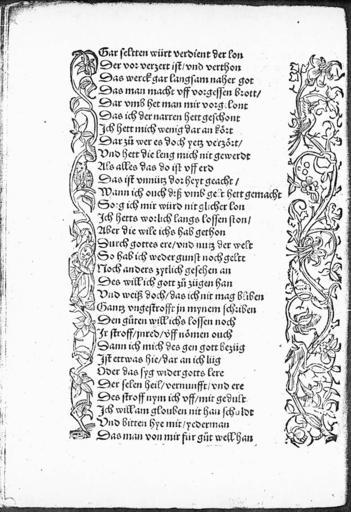 Gar seltten würt verdient der lon
Der vor verzert ist/vnd verthon
Das werck gar langsam naher got
Das man macht vff vorgessen brott/
Dar vmb het man mir vorg lont
Das ich der narren hett geschont
Ich hett mich wenig dar an kört
Dar zů wer es doch yetz verzört/
Vnd hett die leng mich nit gewerdt
Als alles das do ist vff erd
Das ist vnnütz dorheyt geacht/
Wann ich ouch diß vmb gelt hett gemacht
Sorg ich mir würd nit glicher lon
Ich hetts worlich langs lossen ston/
Aber die wile ichs hab gethon
Durch gottes ere/vnd nutz der welt
So hab ich weder gunst noch gelt
Noch anders zytlich gesehen an
Des will ich gott zů zügen han
Vnd weiß doch/das ich nit mag bliben
Gantz vngestrofft jn mynem schriben
Den gůten will ichs lossen noch
Ir stroff/jnred/vff nömen ouch
Dann ich mich des gen gott bezüg
Ist ettwas hie/dar an ich lüg
Oder das syg wider gotts lere
Der selen heil/vernunfft/vnd ere
Des stroff nym ich vff/mit gedult
Ich will am glouben nit han schuldt
Vnd bitten hye mit/yederman
Das man von mir für gůt well han